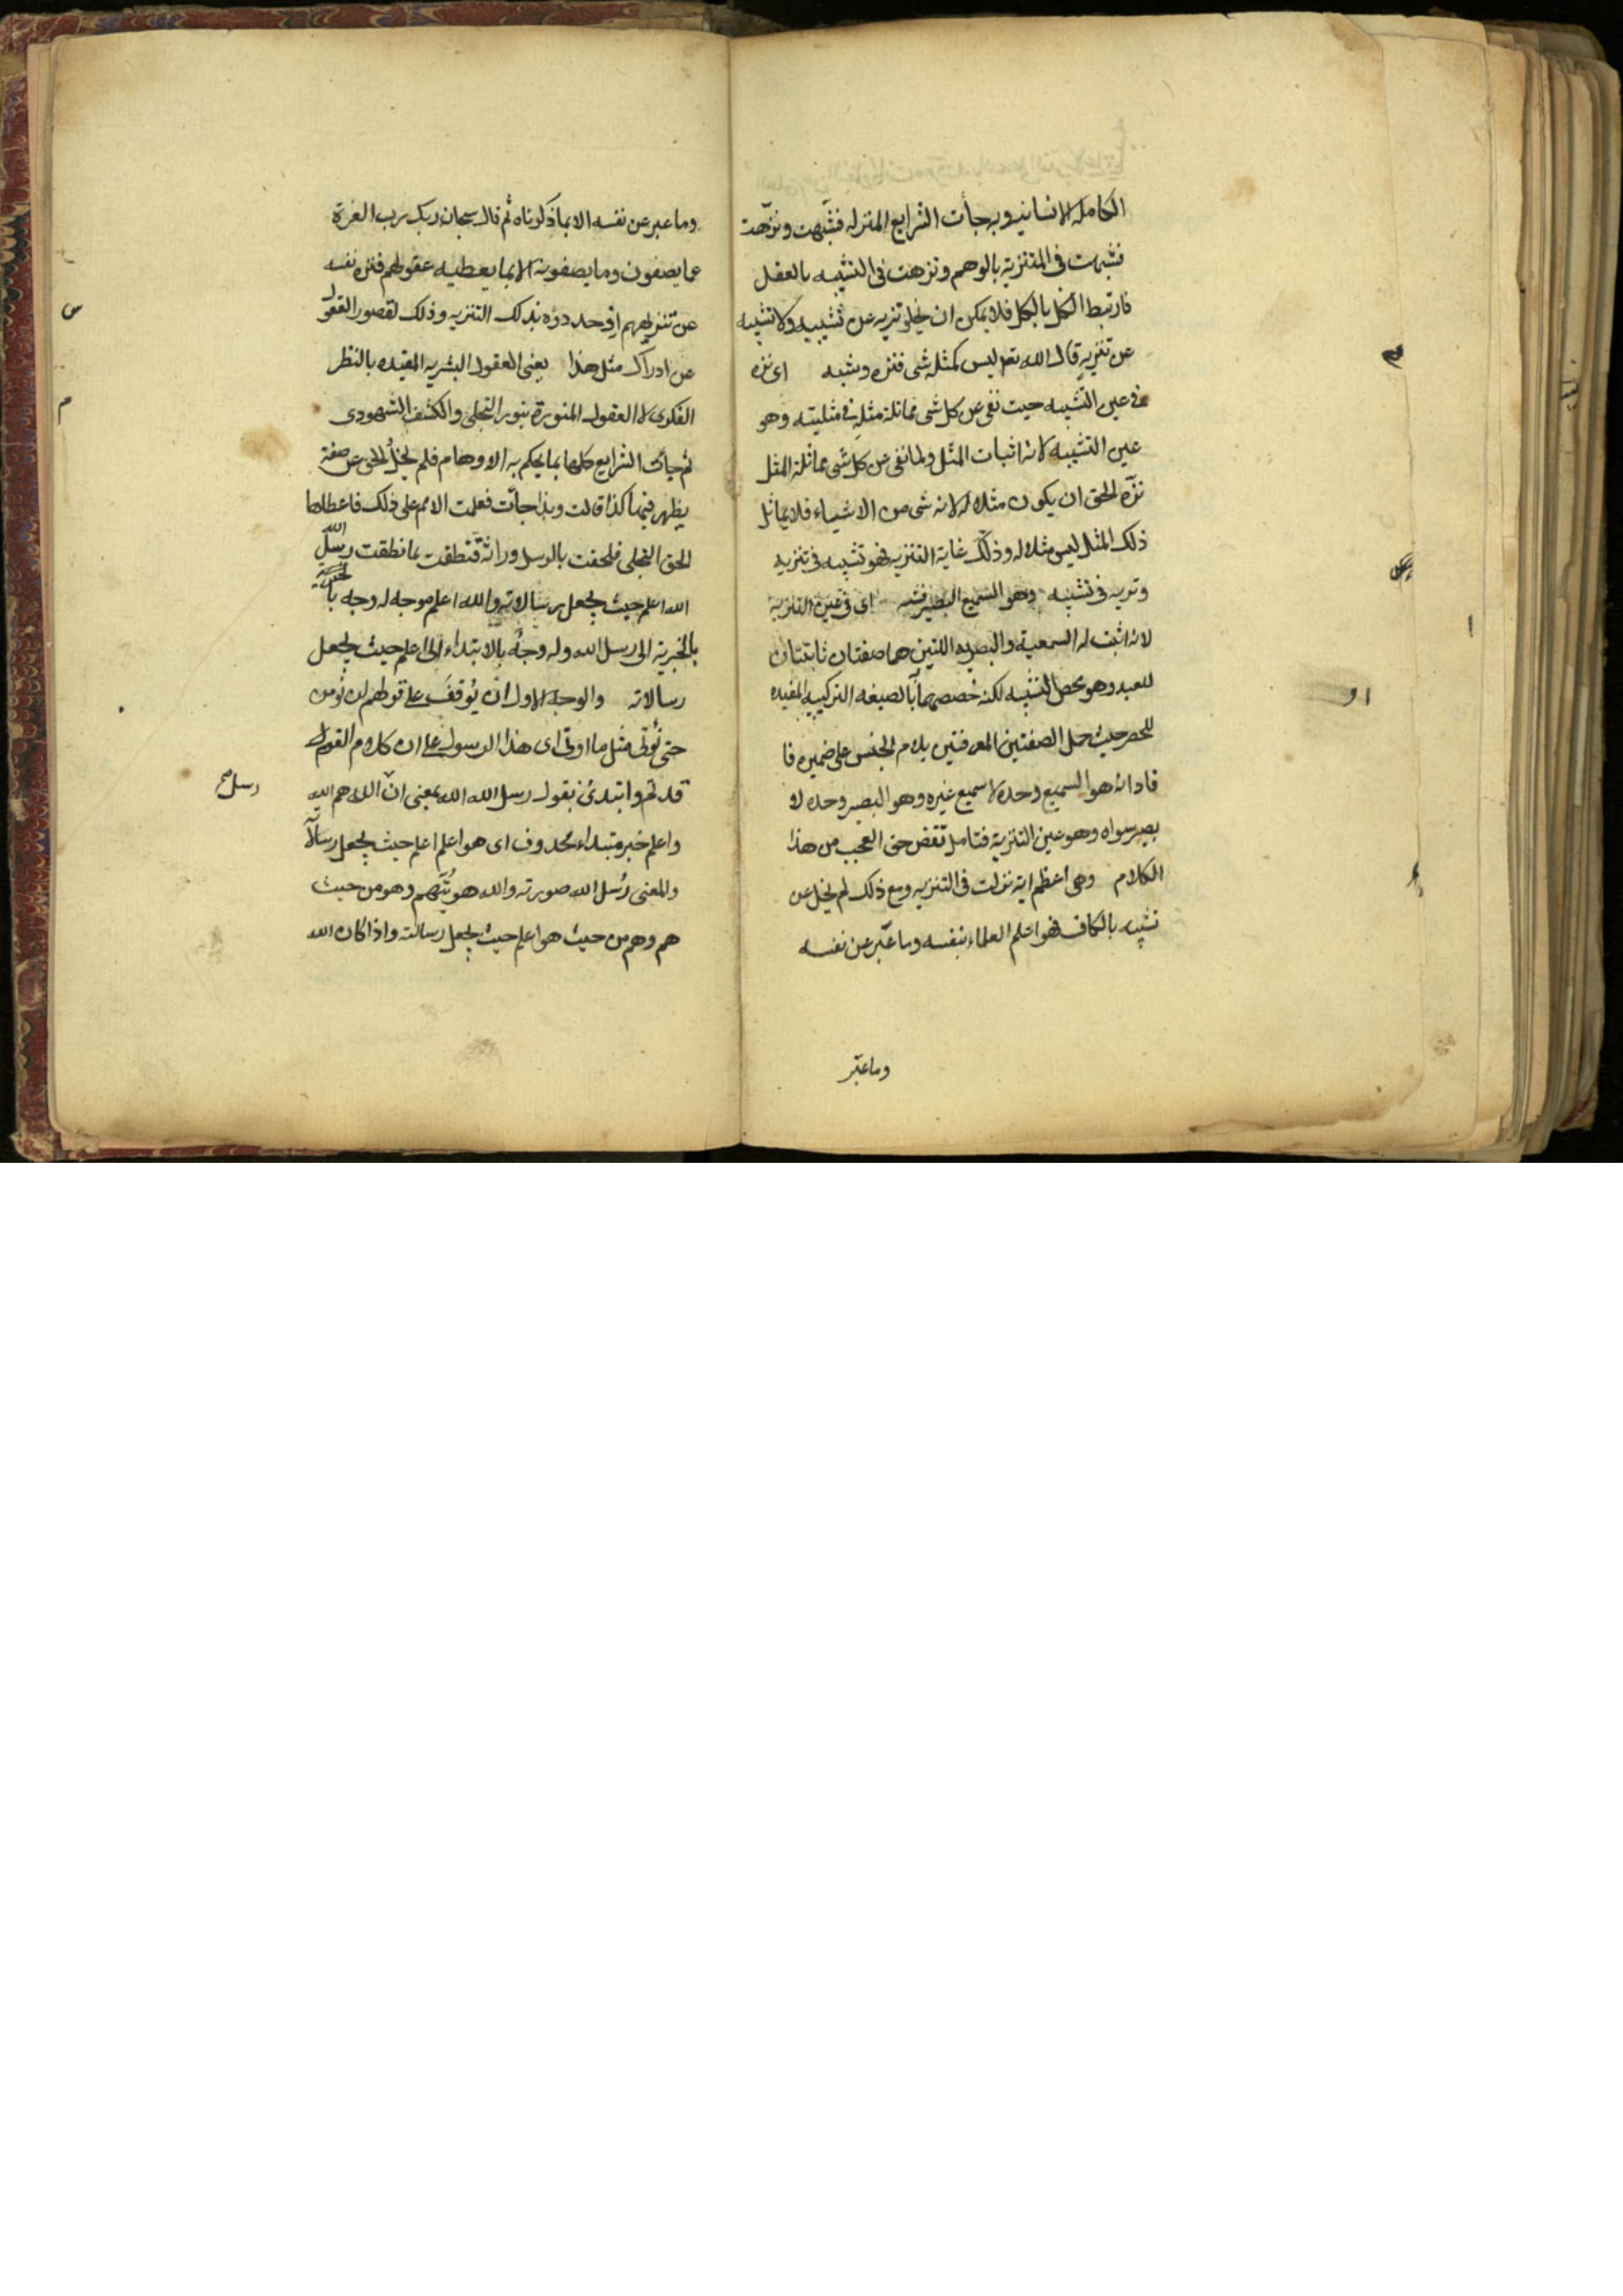 الكاملة الانسانيه وبه جأت الشرايع المنزله فشبّهت ونزّهت
فشبهت فى التنزيه بالوهم ونزهت فى التشبيه بالعقل
فارتبط الكل بالكل فلا يمكن ان يخلو تنزيه عن تشبيه ولا تشبيه
عن تنزيه قال الله تعـ ليس كمثله شى فنزه وشبه اى نزه
فى عين التشبيه حيث نفى عن كل شى مماثلة مثله فى مثليته وهو
عين التشبيه لانه اثبات المثل ولما نفى عن كل شى مماثلة المثل
نزّه الحق ان يكون مثلا له لانه شى من الاشياء فلا يماثل
ذلك المثل ليس مثلا له وذلك غاية التنزيه فهو تشبيه فى تنزيه
وتنزيه فى تشبيه وهو السميع البصير فشبه اى فى عين التنزيه
لانه اثبت له السمعية والبصريه اللتين هما صفتان ثابتتان
للعبد وهو محض التشبيه لكنه خصصهما بالصيغه التركيبيه المفيده
للحصر حيث حمل الصفتين المعرفتين بلام الجنس على ضميره فا
فاد انه هو السميع وحده لا سميع غيره وهو البصير وحده لا
بصير سواه وهو عين التنزيه فتامل تقض حق العجب من هذا
الكلام وهى اعظم اية نزلت فى التنزيه ومع ذلك لم يخل عن
تشبيه بالكاف فهو اعلم العلماء بنفسه وما عبّر عن نفسه
وما عبّر
وما عبر عن نفسه الا بما ذكرناه ثم قال سبحان ربك رب العزة
عما يصفون وما يصفونه الا بما يعطيه عقولهم فنزه نفسه
عن تنزيههم اذ حددوه بذلك التنزيه وذلك لقصور العقول
عن ادراك مثل هذا يعنى العقول البشريه المقيده بالنظر
الفكرى لا العقول المنورة بنور التجلى والكشف الشهودى
ثم جأت الشرايع كلها بما يحكم به الاوهام فلم يخل الحق عن صفة
يظهر فيها كذا قالت وبذا جأت فعلمت الامم على ذلك فاعطاها
الحق التجلى فلحقت بالرسل وراثة فنطقت بما نطقت رسل الله
الله اعلم حيث يجعل رسالاته والله اعلم موجه له وجه
بالخبرية الى رسل الله وله وجه بالابتداء الى اعلم حيث يجعل
رسالاته والوجه الاول ان يُوقف على قولهم لن نؤمن
حتى نُؤتى مثل ما اوتى اى هذا الرسول على ان كلام القوم
قد تم وابتدئ بقوله رسل الله الله بمعنى انّ الله هم الله
رسل صح
واعلم خبر مبتداء محذوف اى هو اعلم اعلم حيث يجعل رسالاته
والمعنى رُسل الله صورته والله هويّتهم وهو من حيث
هم وهم من حيث هو اعلم حيث يجعل رسالته واذا كان الله